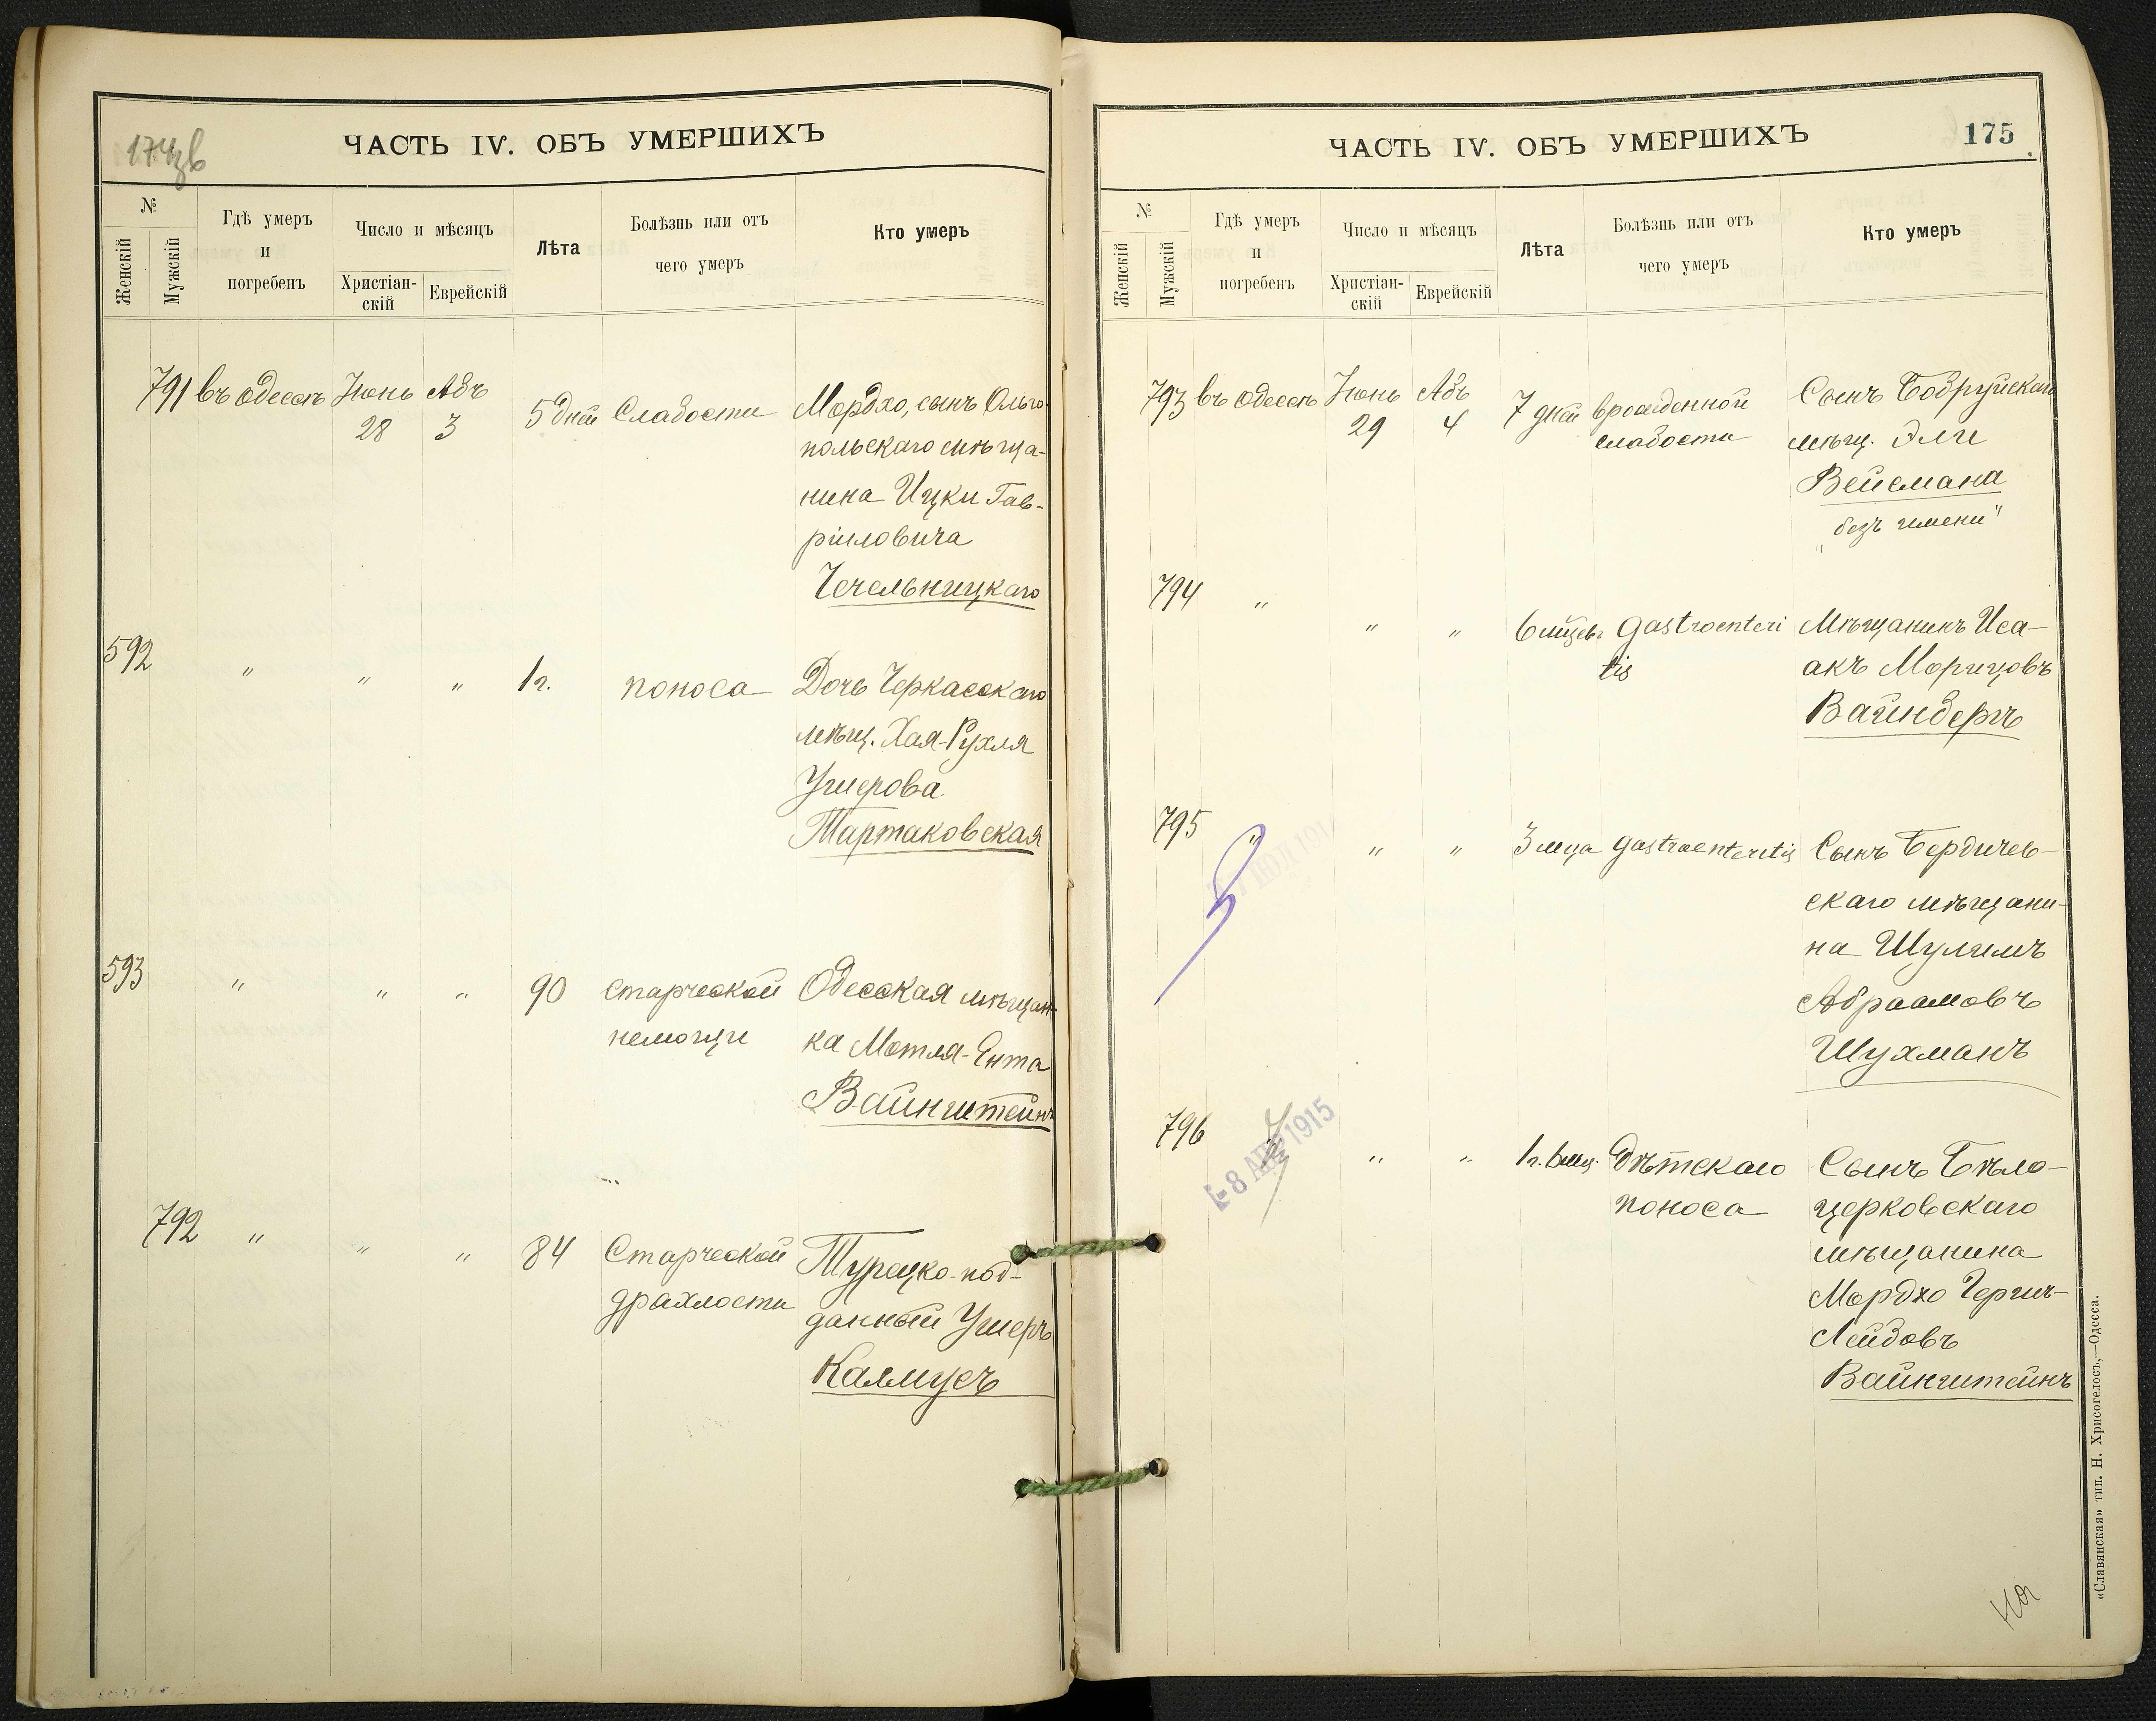 174 об
ЧАСТЬ IV. ОБЪ УМЕРШИХЪ
№
Женскій
Мужскій
Гдѣ умеръ
и
погребенъ
Число и мѣсяцъ
Христіан-
скій
Еврейскій
Лѣта
Болѣзнь или отъ
чего умеръ
Кто умеръ
791 въ Одессѣ Іюнь Абъ
28 3
5 дней Слабости Мордхо, сынъ Ольго-
польскаго мѣща-
нина Ицки Гав-
ріиловича
Чечельницкаго
592 " " " 1 г. поноса Дочь Черкасскаго
мѣщ. Хая-Рухля
Ушерова
Тартаковская
593 " " " 90 старческой Одесская мѣщан-
немощи ка Мотля-Ента
Вайнштейнъ
792 " " " 84 Старческой Турецко-под-
дряхлости данный Ушеръ
Калмусъ
ЧАСТЬ IV. ОБЪ УМЕРШИХЪ
175
№
Женскій
Мужскій
Гдѣ умеръ
и
погребенъ
Число и мѣсяцъ
Христіан-
скій
Еврейскій
Лѣта
Болѣзнь или отъ
чего умеръ
Кто умеръ
793 въ Одессѣ Іюнь Абъ 7 дней врожденной Сынъ Бобруйскаго
29 4 слабости мѣщ. Эли
Вейсмана
"безъ имени"
794 " " " 6 мцевъ Gastroenteri Мѣщанинъ Иса-
tis акъ Морицовъ
Вайнбергъ
795 " " " 3 мца gastroenteritis Сынъ Бердичев-
скаго мѣщани-
на Шулимъ
Абрамовъ
Шухманъ
796 " " " 1 г. 6 мц. Дѣтскаго Сынъ Бѣло-
поноса церковскаго
мѣщанина
Мордхо Герш-
Лейбовъ
Вайнштейнъ
-8 АПР 1915
«Славянская» тип. Н. Хрисогелосъ,—Одесса.